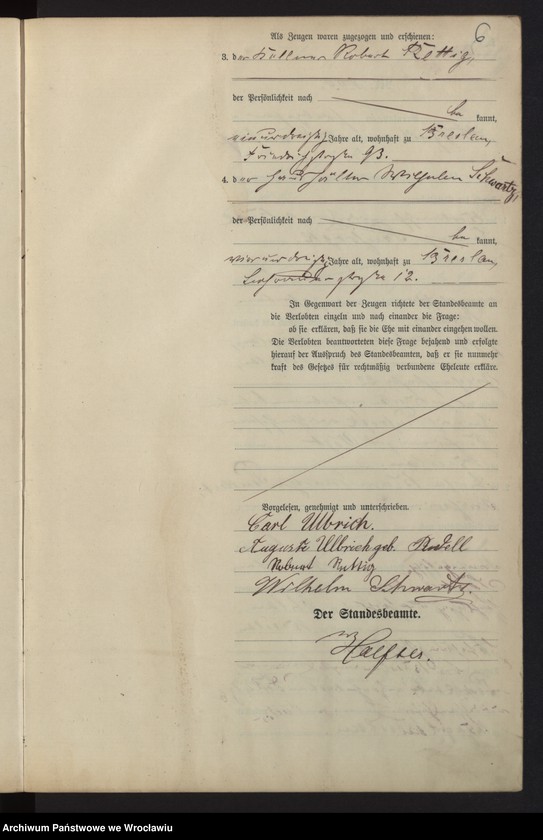 6
Als Zeugen waren zugezogen und erschienen:
3. der Kellner Robert Rettig,
der Persönlichkeit nach
be kannt,
einunddreißig Jahre alt, wohnhaft zu Breslau,
Friedrichstraße 93.
4. der Haushälter Wilhelm Schwartz,
der Persönlichkeit nach
be kannt,
vierunddreißig Jahre alt, wohnhaft zu Breslau,
straße 12.
In Gegenwart der Zeugen richtete der Standesbeamte an
die Verlobten einzeln und nach einander die Frage:
ob sie erklären, daß sie die Ehe mit einander eingehen wollen.
Die Verlobten beantworteten diese Frage bejahend und erfolgte
hierauf der Ausspruch des Standesbeamten, daß er sie nunmehr
kraft des Gesetzes für rechtmäßig verbundene Eheleute erkläre.
Vorgelesen, genehmigt und unterschrieben.
Carl Ulbrich.
Auguste Ulbrich geb.
Robert Rettig
Wilhelm Schwartz.
Der Standesbeamte.
Halfter.
Archiwum Państwowe we Wrocławiu